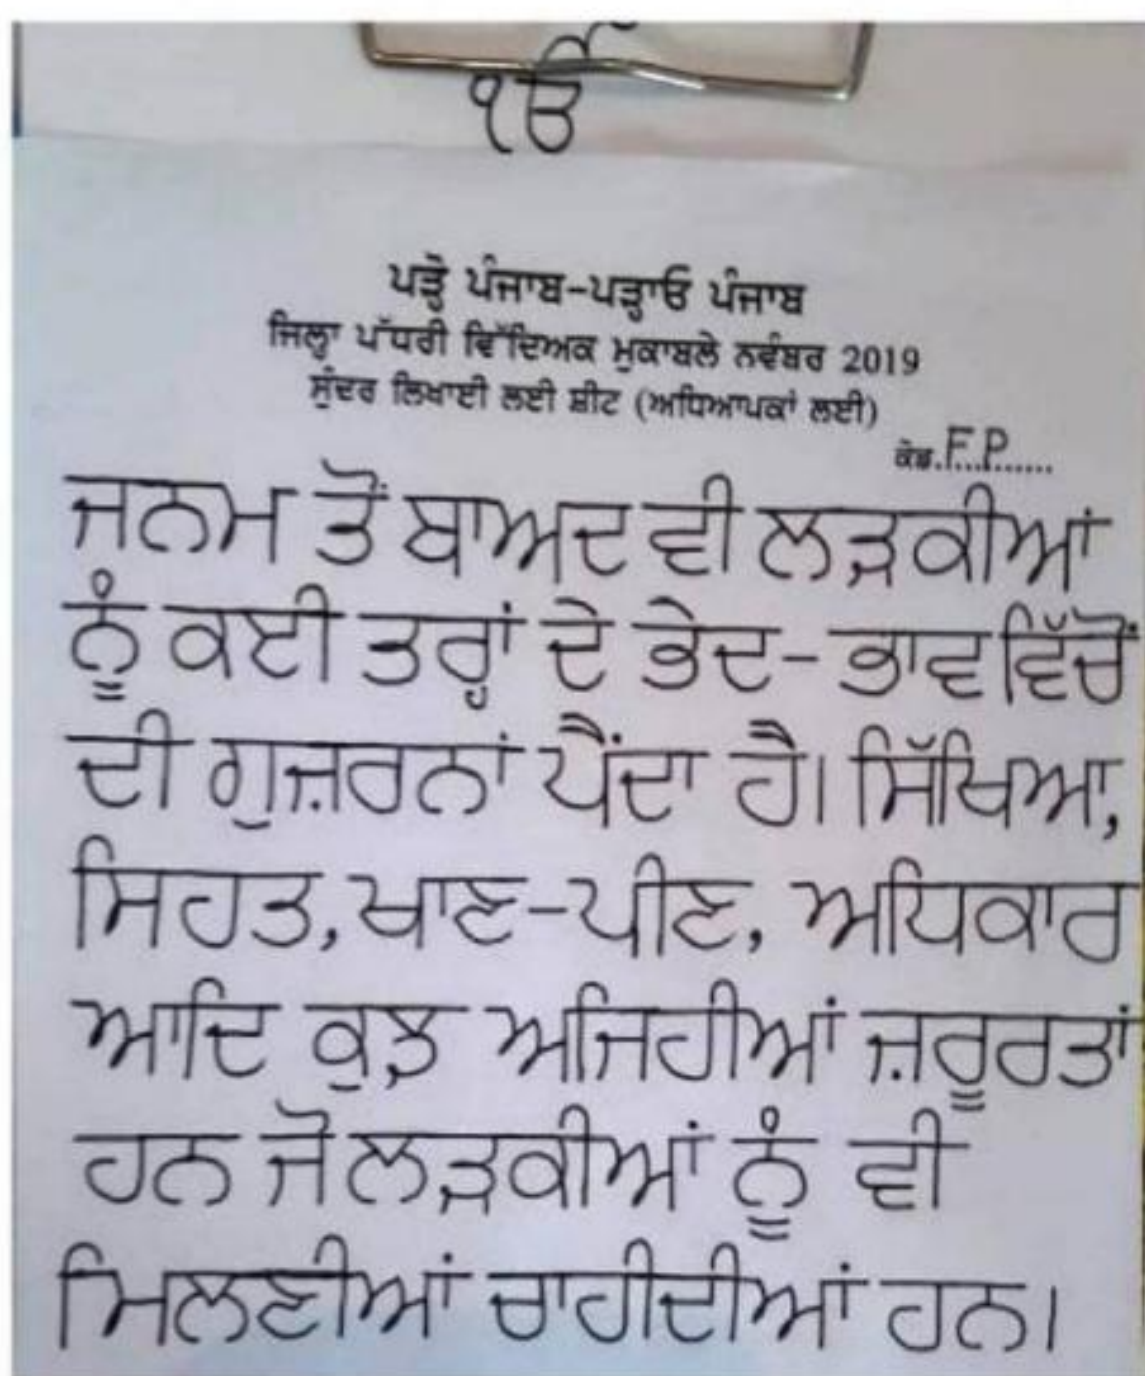 ੴ
ਪੜ੍ਹੋ ਪੰਜਾਬ-ਪੜ੍ਹਾਓ ਪੰਜਾਬ
ਜਿਲ੍ਹਾ ਪੱਧਰੀ ਵਿੱਦਿਅਕ ਮੁਕਾਬਲੇ ਨਵੰਬਰ 2019
ਸੁੰਦਰ ਲਿਖਾਈ ਲਈ ਸ਼ੀਟ (ਅਧਿਆਪਕਾਂ ਲਈ)
ਕੋਡ.F.P......
ਜਨਮ ਤੋਂ ਬਾਅਦ ਵੀ ਲੜਕੀਆਂ
ਨੂੰ ਕਈ ਤਰ੍ਹਾਂ ਦੇ ਭੇਦ-ਭਾਵ ਵਿੱਚੋਂ
ਦੀ ਗੁਜ਼ਰਨਾਂ ਪੈਂਦਾ ਹੈ। ਸਿੱਖਿਆ,
ਸਿਹਤ, ਖਾਣ-ਪੀਣ, ਅਧਿਕਾਰ
ਆਦਿ ਕੁਝ ਅਜਿਹੀਆਂ ਜ਼ਰੂਰਤਾਂ
ਹਨ ਜੋ ਲੜਕੀਆਂ ਨੂੰ ਵੀ
ਮਿਲਣੀਆਂ ਚਾਹੀਦੀਆਂ ਹਨ।